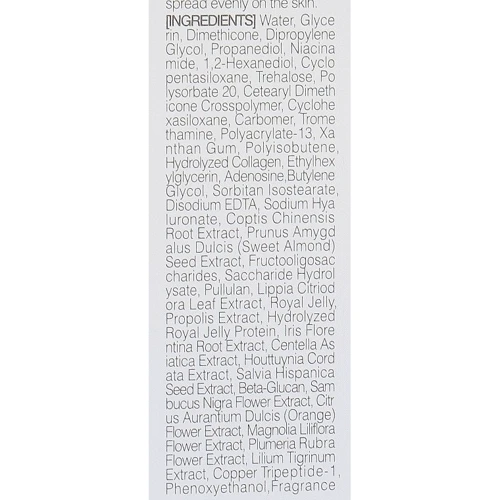 spread evenly on the skin.
[INGREDIENTS] Water, Glyce
rin, Dimethicone, Dipropylene
Glycol, Propanediol, Niacina
mide, 1,2-Hexanediol, Cyclo
pentasiloxane, Trehalose, Po
lysorbate 20, Cetearyl Dimeth
icone Crosspolymer, Cyclohe
xasiloxane, Carbomer, Trome
thamine, Polyacrylate-13, Xa
nthan Gum, Polyisobutene,
Hydrolyzed Collagen, Ethylhex
ylglycerin, Adenosine,Butylene
Glycol, Sorbitan Isostearate,
Disodium EDTA, Sodium Hya
luronate, Coptis Chinensis
Root Extract, Prunus Amygd
alus Dulcis (Sweet Almond)
Seed Extract, Fructooligosac
charides, Saccharide Hydrol
ysate, Pullulan, Lippia Citriod
ora Leaf Extract, Royal Jelly,
Propolis Extract, Hydrolyzed
Royal Jelly Protein, Iris Flore
ntina Root Extract, Centella As
iatica Extract, Houttuynia Cord
ata Extract, Salvia Hispanica
Seed Extract, Beta-Glucan, Sam
bucus Nigra Flower Extract, Citr
us Aurantium Dulcis (Orange)
Flower Extract, Magnolia Liliflora
Flower Extract, Plumeria Rubra
Flower Extract, Lilium Tigrinum
Extract, Copper Tripeptide-1,
Phenoxyethanol,Fragrance